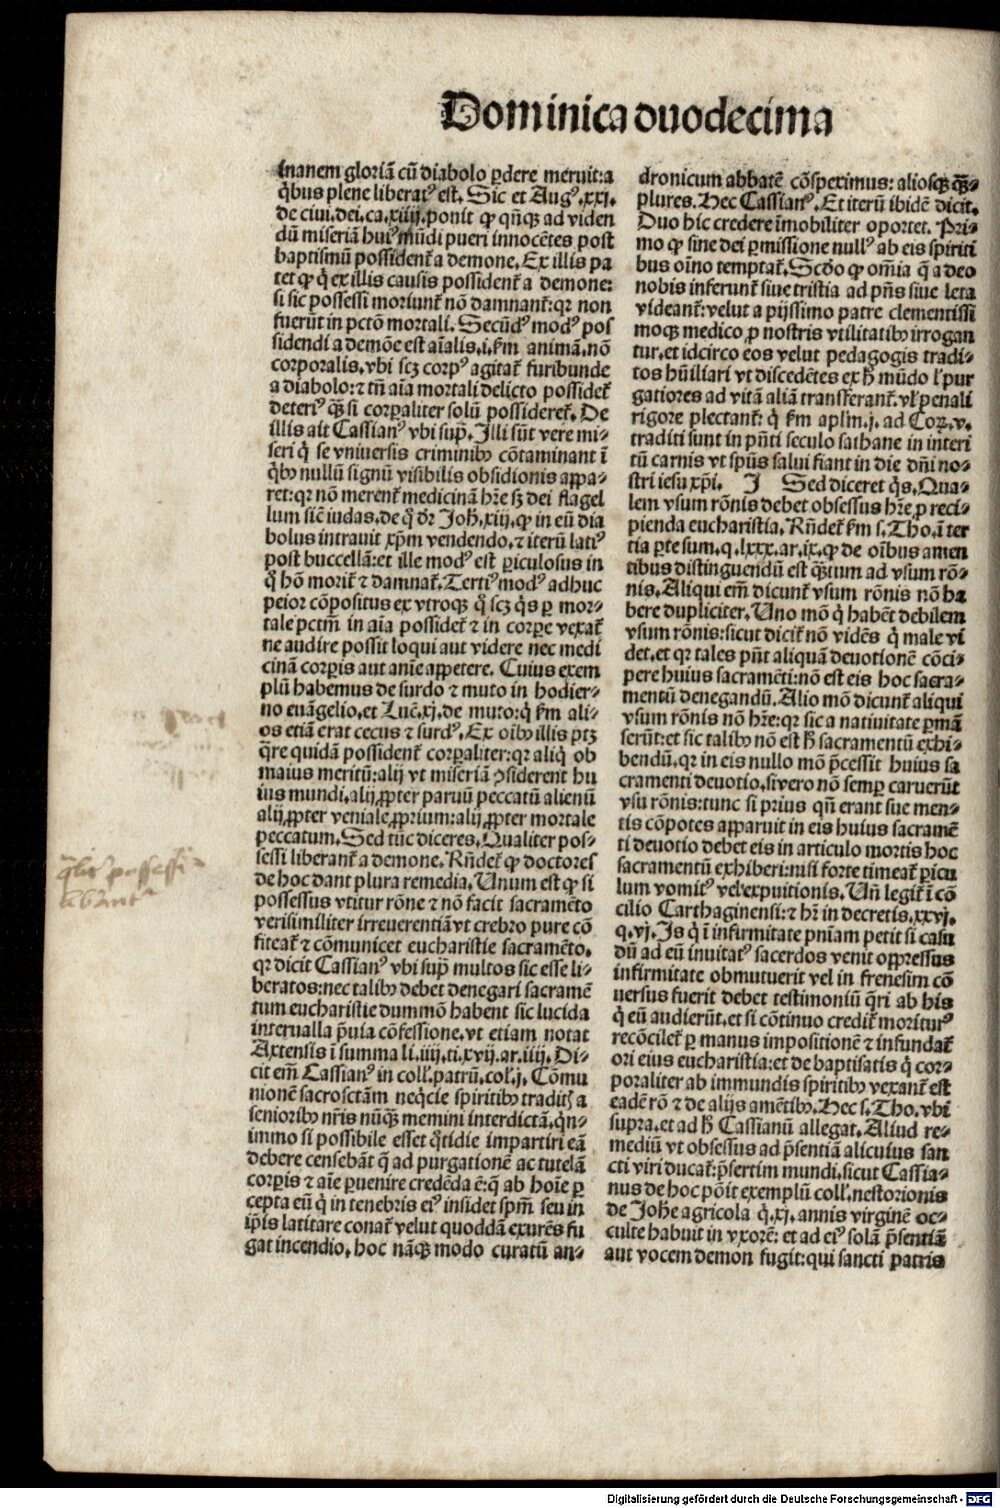 Dominica duodecima
inanem gloriā cū diabolo ꝑdere meruit:a
q̄bus plene liberatꝰ est. Sic et Augꝰ.xxj.
de ciui.dei.ca.xiiij.ponit ꝙ qn̄qꝫ ad viden
dū miseriā huiꝰ mūdi pueri innocētes post
baptismū possident᷑ a demone. Ex illis pa
tet ꝙ q̄ ex illis causis possident᷑ a demone:
si sic possessi moriunt᷑ nō damnant᷑: qꝛ non
fuerūt in pctō mortali. Secūdꝰ modꝰ pos
sidendi a demōe est aīalis.i.ẜm animā.nō
corporalis.vbi scꝫ corpꝰ agitat᷑ furibunde
a diabolo:⁊ tn̄ aīa mortali delicto possidet᷑
deteriꝰ qꝫ̄ si corꝑaliter solū possideret᷑. De
illis ait Cassianꝰ vbi sup̄. Illi sūt vere mi⸗
seri q̄ se vniuersis criminibꝰ cōtaminant ī
q̄bꝰ nullū signū visibilis obsidionis appa⸗
ret:qꝛ nō merent᷑ medicinā hr̄e sꝫ dei flagel
lum sic̄ iudas.de q̄ dr̄ Joh̄.xiij.ꝙ in eū dia
bolus intrauit xp̄m vendendo.⁊ iterū latiꝰ
post buccellā:et ille modꝰ est ꝑiculosus in
q̄ hō morit᷑ ⁊ damnat᷑. Tertiꝰ modꝰ adhuc
peior cōpositus ex vtroqꝫ q̄ scꝫ q̄s ꝑ mor⸗
tale pctm̄ in aīa possidet᷑ ⁊ in corꝑe vexat᷑
ne audire possit loqui aut videre nec medi
cinā corꝑis aut anīe appetere. Cuius exem
plū habemus de surdo ⁊ muto in hodier⸗
no euāgelio.et Luc̄.xj.de muto:q̄ ẜm ali⸗
os etiā erat cecus ⁊ surdꝰ. Ex oībꝰ illis ptꝫ
q̄re quidā possident᷑ corꝑaliter:qꝛ aliq̄ ob
maius meritū:alij vt miseriā ꝯsiderent hu
ius mundi.alij ꝓpter paruū peccatū alienū
alij ꝓpter veniale ꝓprium:alij ꝓpter mortale
peccatum. Sed tūc diceres. Qualiter pos⸗
sessi liberant᷑ a demone. Rn̄det᷑ ꝙ doctores
de hoc dant plura remedia. Unum est ꝙ si
possessus vtitur rōne ⁊ nō facit sacramēto
verisimiliter irreuerentiā vt crebro pure cō
fiteat᷑ ⁊ cōmunicet eucharistie sacramēto.
qꝛ dicit Cassianꝰ vbi sup̄ multos sic esse li⸗
beratos:nec talibꝰ debet denegari sacramē
tum eucharistie dummō habent sic lucida
interualla p̄uia cōfessione.vt etiam notat
Axtensis ī summa li.iiij.ti.xvij.ar.iiij. Di⸗
cit em̄ Cassianꝰ in coll̄.patrū.col̄.j. Cōmu
nionē sacrosctām neq̄cīe spiritibꝰ traditꝭ a
senioribꝰ nr̄is nūqꝫ̄ memini interdictā.q̄n⸗
immo si possibile esset q̄tidie impartiri eā
debere censebāt q̄ ad purgationē ac tutelā
corꝑis ⁊ aīe ꝑuenire credēda ē:q̄ ab hoīe ꝑ
cepta eū q̄ in tenebris eiꝰ insidet spm̄ seu in
ip̄is latitare conat᷑ velut quoddā exurēs fu
gat incendio. hoc nāqꝫ modo curatū an⸗
q̄lit᷑ possessi
dronicum abbatē cōspeximus: aliosqꝫ qꝫ̄⸗
plures. Hec Cassianꝰ. Et iterū ibidē dicit.
Duo hic credere īmobiliter oportet. Pri⸗
mo ꝙ sine dei ꝑmissione nullꝰ ab eis spiriti
bus oīno temptat᷑. Scd̄o ꝙ om̄ia q̄ a deo
nobis inferunt᷑ siue tristia ad pn̄s siue leta
videant᷑: velut a pijssimo patre clementissi
moqꝫ medico ꝓ nostris vtilitatibꝰ irrogan
tur.et idcirco eos velut pedagogis tradi⸗
tos hūiliari vt discedētes ex h̄ mūdo l̄ pur
gatiores ad vitā aliā transferant᷑.vl̄ penali
rigore plectant᷑: q̄ ẜm aplm̄.j. ad Coꝝ.v.
traditi sunt in pn̄ti seculo sathane in interi
tū carnis vt spūs salui fiant in die dn̄i no⸗
stri iesu xp̄i. J Sed diceret q̄s. Qua⸗
lem vsum rōnis debet obsessus hr̄e ꝓ reci⸗
pienda eucharistia. Rn̄det᷑ ẜm s.Tho.ī ter
tia ꝑte sum.q.lxxx.ar.ix.ꝙ de oībus amen
tibus distinguendū est qꝫ̄tum ad vsum rō⸗
nis. Aliqui em̄ dicunt᷑ vsum rōnis nō ha
bere dupliciter. Uno mō q̄ habēt debilem
vsum rōnis:sicut dicit᷑ nō vidēs q̄ male vi
det.et qꝛ tales pn̄t aliquā deuotionē cōci⸗
pere huius sacramēti:nō est eis hoc sacra⸗
mentū denegandū. Alio mō dicunt᷑ aliqui
vsum rōnis nō hr̄e:qꝛ sic a natiuitate ꝑmā
serūt:et sic talibꝰ nō est h̄ sacramentū exhi⸗
bendū.qꝛ in eis nullo mō p̄cessit huius sa
cramenti deuotio.si vero nō semꝑ caruerūt
vsu rōnis:tunc si prius qn̄ erant sue men⸗
tis cōpotes apparuit in eis huius sacramē
ti deuotio debet eis in articulo mortis hoc
sacramentū exhiberi:nisi forte timeat᷑ ꝑicu
lum vomitꝰ vel expuitionis. Un̄ legit᷑ ī cō
cilio Carthaginensi:⁊ hr̄ in decretis.xxvj.
q.vj. Is q̄ ī infirmitate pn̄iam petit si casu
dū ad eū inuitatꝰ sacerdos venit oppressus
infirmitate obmutuerit vel in frenesim cō
uersus fuerit debet testimoniū q̄ri ab his
q̄ eū audierūt.et si cōtinuo credit᷑ moriturꝰ
recōcilet᷑ ꝑ manus impositionē ⁊ infundat᷑
ori eius eucharistia:et de baptisatis q̄ cor⸗
poraliter ab immundis spiritibꝰ vexant᷑ est
eadē rō ⁊ de alijs amētibꝰ. Hec s.Tho.vbi
supra.et ad h̄ Cassianū allegat. Aliud re⸗
mediū vt obsessus ad p̄sentiā alicuius san
cti viri ducat᷑: p̄sertim mundi.sicut Cassia⸗
nus de hoc pōit exemplū coll̄.nestorionis
de Joh̄e agricola q̄.xj. annis virginē oc⸗
culte habuit in vxorē: et ad eiꝰ solā p̄sentiā
aut vocem demon fugit:qui sancti patris
Digitalisierung gefördert durch die Deutsche Forschungsgemeinschaft - DFG